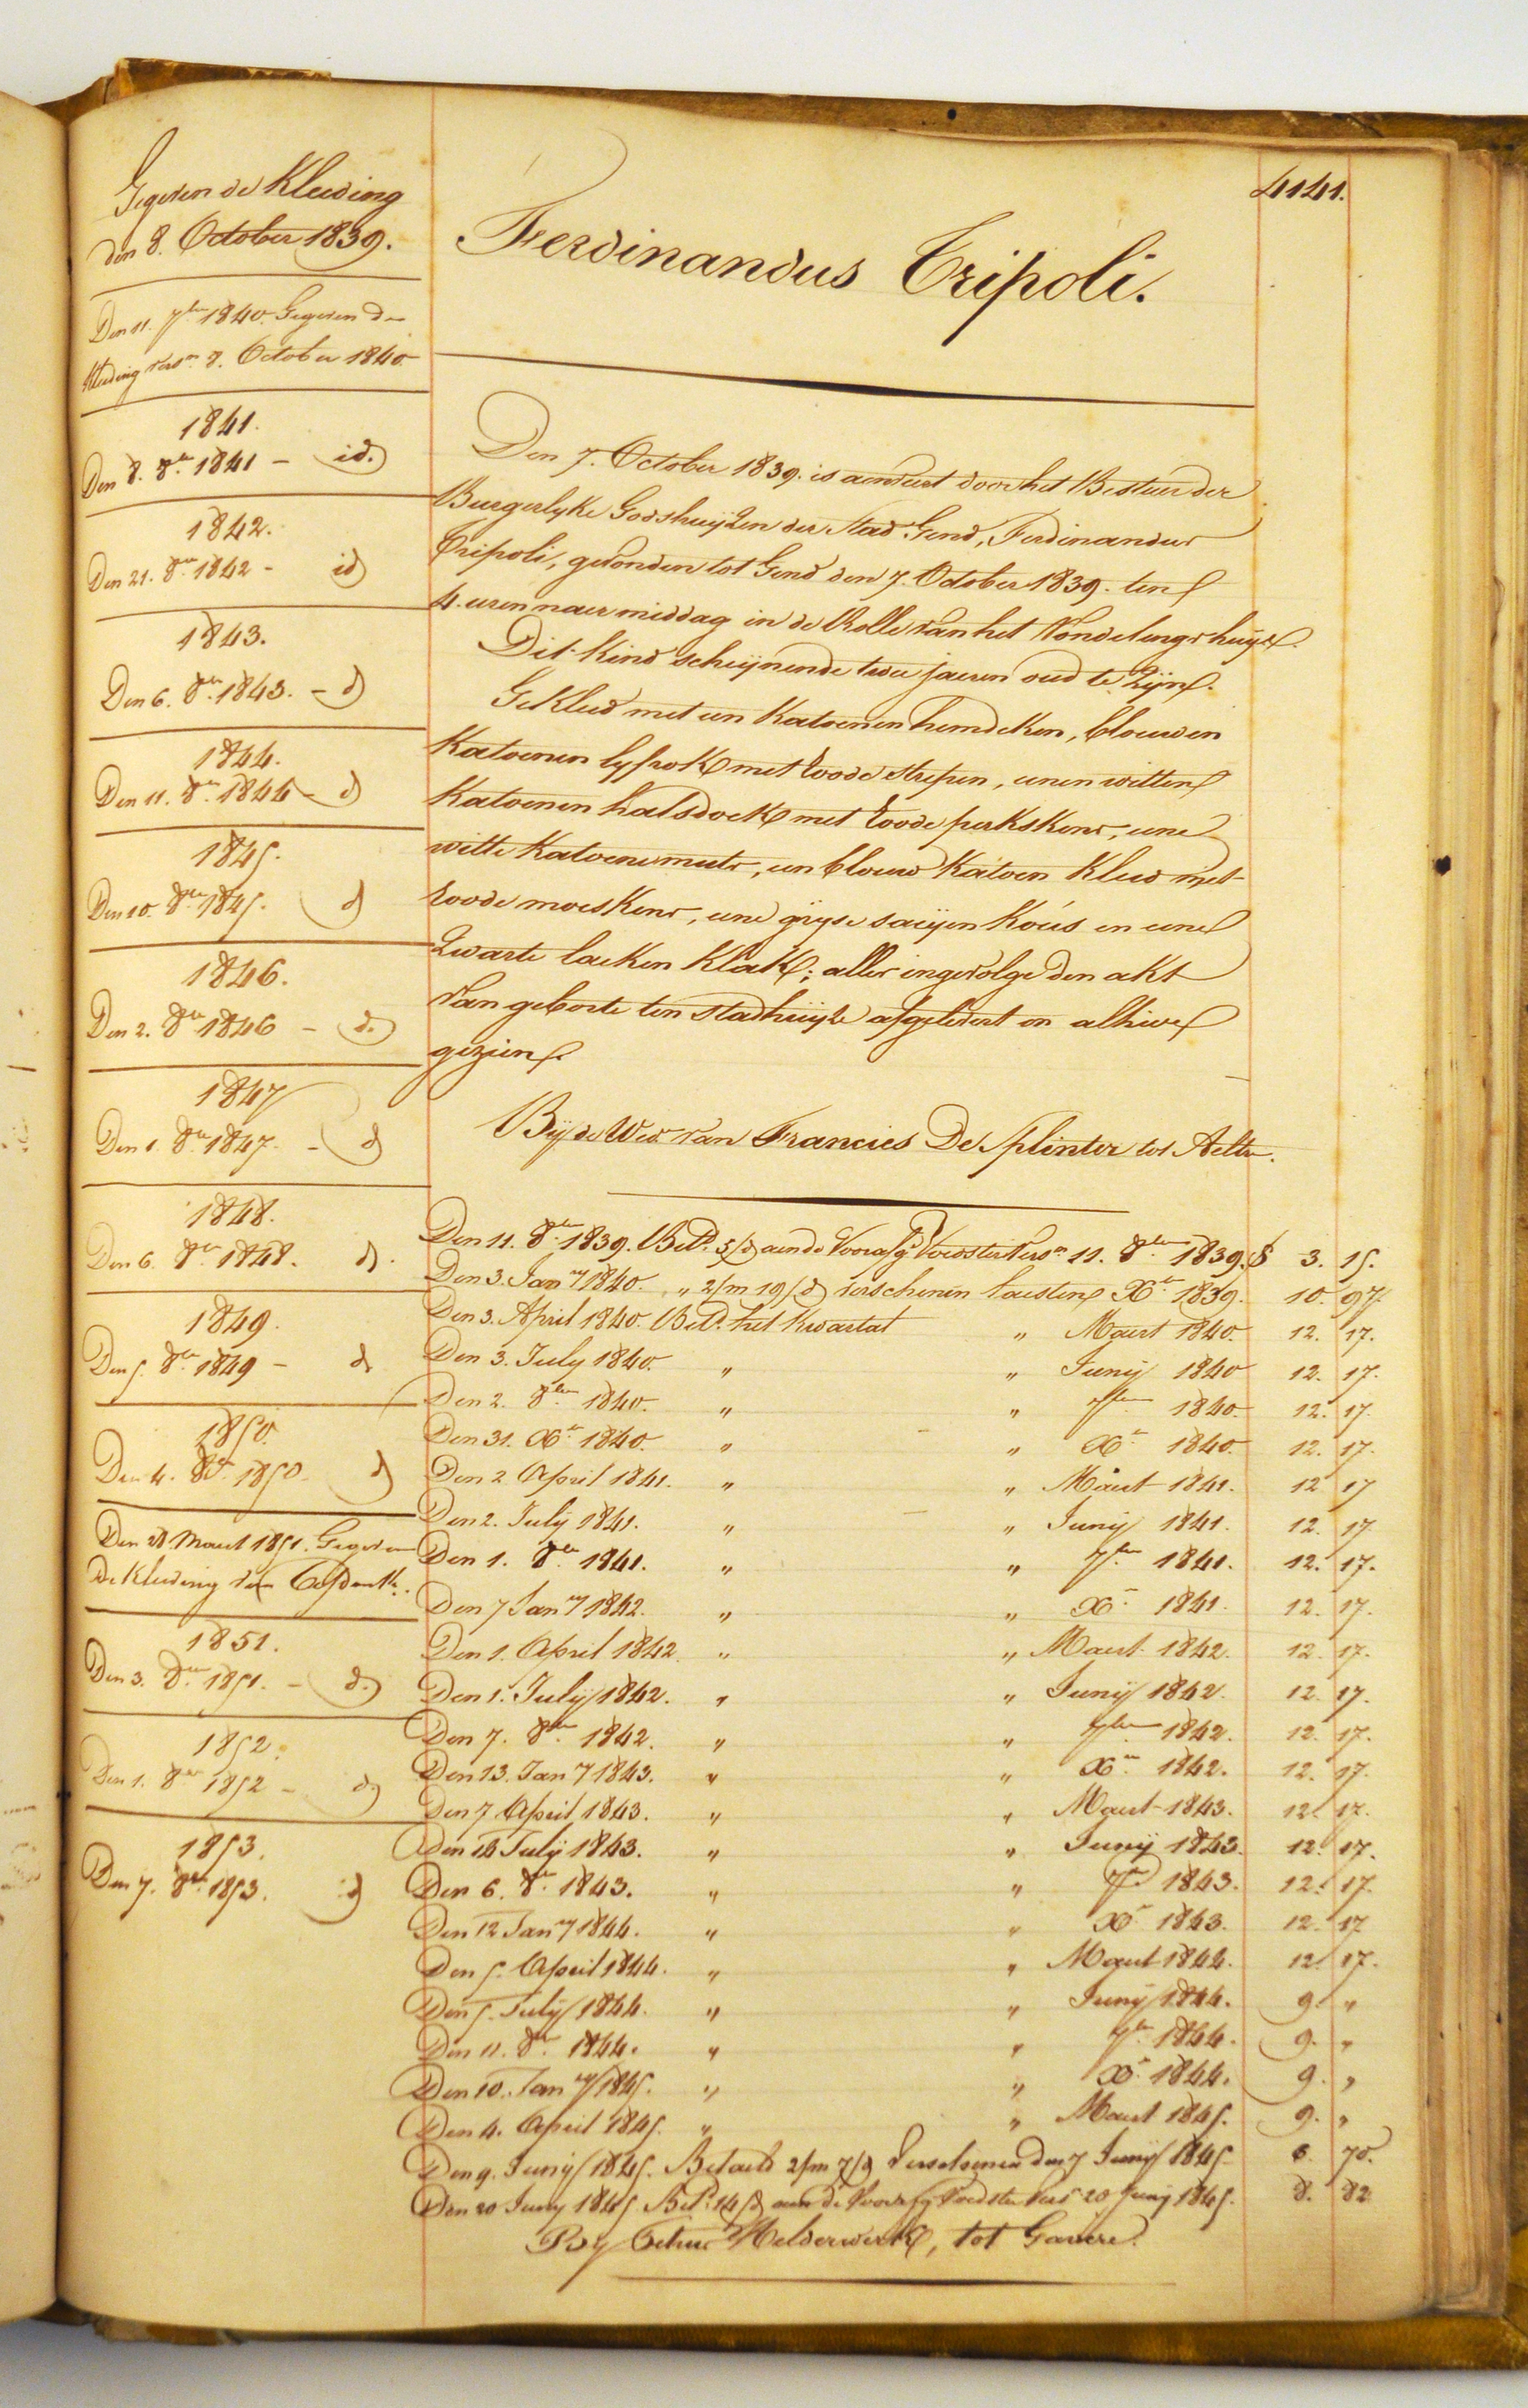 4141.
Gegeven de Kleeding
den 8. October 1839.
Den 11. 7ber 1840. Gegeven de
Kleeding versn 8. October 1840.
1841.
Den 8. 8er 1841 - id.
1842.
Den 21. 8er 1842 - id
1843.
Den 6. 8er 1843. - d
1844.
Den 11. 8er 1844 - d
1845.
Den 10. 8er 1845. d
1846.
Den 2. 8er 1846 - d.
1847
Den 1. 8er 1847. - d
1848.
Den 6. 8er 1848. d.
1849.
Den 5. 8er 1849 - d
1850.
Den 4. 8er 1850. d
Den 28 Maert 1851. Gegeven
de Kleeding van
1851.
Den 3. 8er 1851. - d.
1852.
Den 1. 8er 1852 - d
1853.
Den 7. 8er 1853. id
Ferdinandus Tripoli.
Den 7. October 1839. is aenveert door het Bestuer der
Burgerlyke Godshuijzen der Stad Gend, Ferdinandus
Tripoli, gevonden tot Gend den 7. October 1839. ten
4. uren naer middag in de Rolle van het Vondelingshuijs.
Dit kind schijnende twee jaeren oud te zijn.
Gekleed met een Katoenen hemdeken, blouwen
Katoenen lyfrok met roode strepen, eenen witten
Katoenen halsdoek met roode perkskens, eene
witte Katoene muts, een blouw Katoen Kleed met
roode moeskens, eene gryse saeijen Kous en eene
Zwarte laeken Klak; alles ingevolge den akt
van geborte ten Stadhuijze afgelevert en alhier
gezien.
By de Wed van Francies De Splinter tot Aeltre.
Den 11. 8er 1839. Betd. 5/d aen de Voorafg. Voedster versn 11. 8ber 1839. 3. 15.
Den 3. Jany 1840. " 2/m 19/d verschenen laesten Xer 1839. 10. 97.
Den 3. April 1840. Betd. het Kwartael " Maert 1840. 12. 17.
Den 3. July 1840. " " Junij 1840 12. 17.
Den 2. 8ber 1840. " " 7ber 1840. 12. 17.
Den 31. Xer 1840. " " Xer 1840. 12. 17.
Den 2 April 1841. " " Maert 1841. 12 17
Den 2. July 1841. " " Junij 1841. 12. 17
Den 1. 8er 1841. " " 7ber 1841. 12. 17.
Den 7 Jany 1842. " " Xr 1841. 12. 17.
Den 1. April 1842. " " Maert 1842. 12. 17.
Den 1. Julij 1842. " " Junij 1842. 12. 17.
Den 7. 8er 1842. " " 7ber 1842. 12. 17.
Den 13. Jany 1843. " " Xer 1842. 12. 17.
Den 7 April 1843. " " Maert 1843. 12. 17.
Den 14 Julij 1843. " " Junij 1843. 12. 17.
Den 6. 8er 1843. " " 7er 1843. 12. 17.
Den 12 Jany 1844. " " Xr 1843. 12. 17
Den 5. April 1844. " " Maert 1844. 12. 17.
Den 5. Julij 1844. " " Junij 1844. 9. "
Den 11. 8er 1844. " " 7er 1844. 9. "
Den 10. Jany 1845. " " Xr 1844. 9. "
Den 4. April 1845. " " Maert 1845. 9. "
Den 9. Junij 1845. Betaeld 2/m 7/d Verschenen den 7 Junij 1845. 6. 70.
Den 20 Juny 1845. Betd. 14/d aen de Voorafg Voedster Versn 20 Junij 1845. 8. 82
By Melderwerk, tot Gavere.